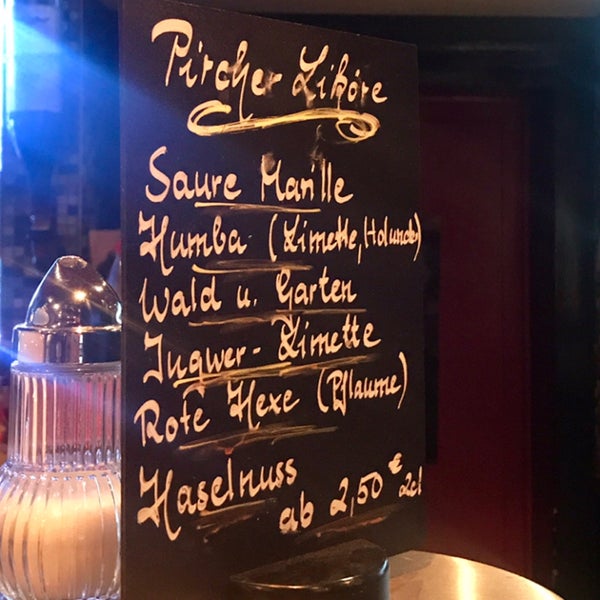 Pircher Liköre
Saure Marille
Humba (Limette, Holunder)
Wald u. Garten
Ingwer - Limette
Rote Hexe (Pflaume)
Haselnuss
ab 2,50 € 2cl